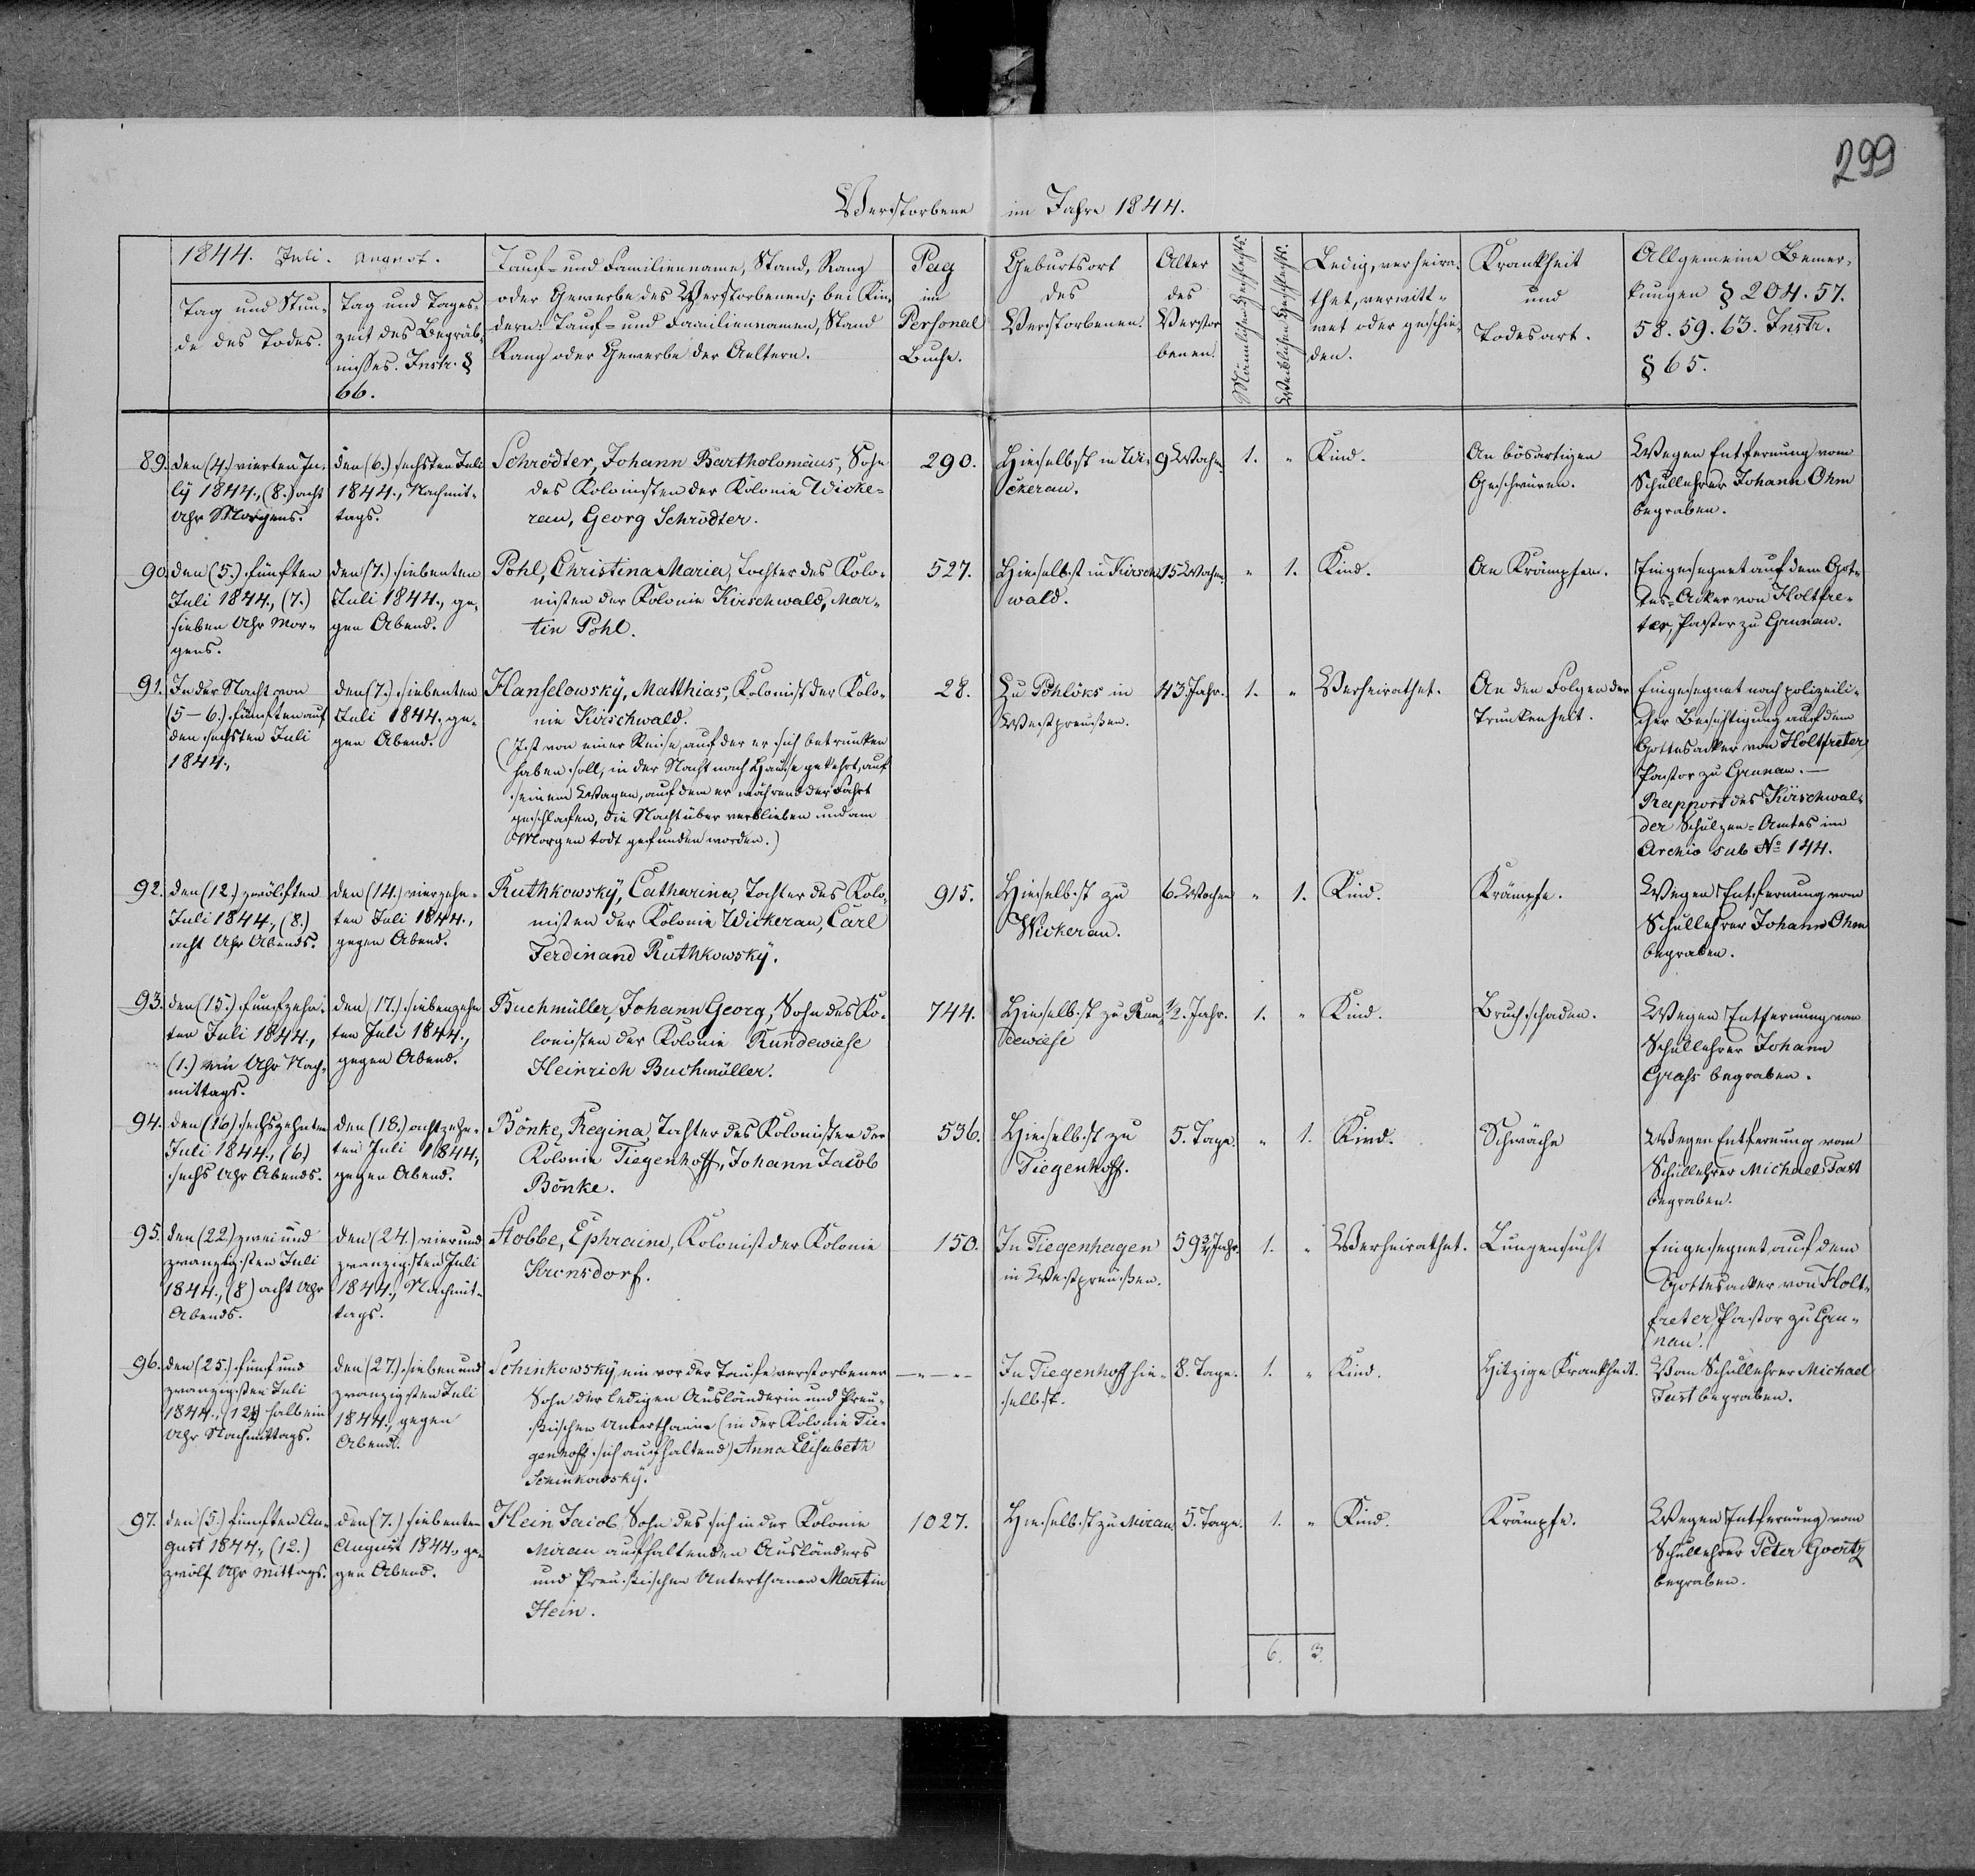 299
Verstorbene im Jahre 1844.
1844. Juli. August.
Tag und Stun-
de des Todes.
Tag und Tages-
zeit des Begräb-
nisses. Instr. §
66.
Tauf- und Familienname, Stand, Rang
oder Gewerbe des Verstorbenen; bei Kin-
dern: Tauf- und Familiennamen, Stand
Rang oder Gewerbe der Aeltern.
Pag
im
Personal
Buche.
Geburtsort
des
Verstorbenen.
Alter
des
Verstor
benen.
Männlichen Geschlechts.
Weiblichen Geschlechts.
Ledig, verheira-
thet, verwitt-
wet oder geschie-
den.
Krankheit
und
Todesart.
Allgemeine Bemer-
kungen § 204. 57.
58. 59. 63. Instr.
§ 65.
89.
den (4.) vierten Ju-
ly 1844., (8.) acht
Uhr Morgens.
den (6.) sechsten Juli
1844., Nachmit-
tags.
Schrödter, Johann Bartholomäus, Sohn
des Kolonisten der Kolonie Wicke-
rau, Georg Schrödter.
290.
Hieselbst in Wi-
ckerau.
9 Woch.
1.
"
Kind.
An bösartigen
Geschwüren.
Wegen Entfernung vom
Schullehrer Johann Ohm
begraben.
90.
den (5.) fünften
Juli 1844., (7.)
sieben Uhr Mor-
gens.
den (7.) siebenten
Juli 1844., ge-
gen Abend.
Pohl, Christina Maria, Tochter des Kolo-
nisten der Kolonie Kirschwald, Mar-
tin Pohl.
527.
Hieselbst in Kirsch-
wald.
15 Woch.
"
1.
Kind.
An Krämpfen.
Eingesegnet auf dem Got-
tes-Acker von Holtfre-
ter, Pastor zu Grunau.
91.
In der Nacht von
(5-6.) fünften auf
den sechsten Juli
1844.,
den (7.) siebenten
Juli 1844., ge-
gen Abend.
Hanselowsky, Matthias, Kolonist der Kolo-
nie Kirschwald.
(Ist von einer Reise, auf der er sich betrunken
haben soll, in der Nacht nach Hause gekehrt, auf
seinem Wagen, auf dem er während der Fahrt
geschlafen, die Nacht über verblieben und am
Morgen todt gefunden worden.)
28.
Zu Pohlöks in
Westpreußen.
43. Jahr.
1.
"
Verheirathet.
An den Folgen der
Trunkenheit.
Eingesegnet nach polizeili-
cher Besichtigung auf dem
Gottesacker von Holtfreter
Pastor zu Grunau. —
Rapport des Kirschwal-
der Schulzen-Amtes im
Archiv sub No 144.
92.
den (12.) zwölften
Juli 1844., (8.)
acht Uhr Abends.
den (14.) vierzehn-
ten Juli 1844.,
gegen Abend.
Ruthkowsky, Catharina, Tochter des Kolo-
nisten der Kolonie Wickerau, Carl
Ferdinand Ruthkowsky.
915.
Hieselbst zu
Wickerau.
6. Wochen
"
1.
Kind.
Krämpfe.
Wegen Entfernung vom
Schullehrer Johann Ohm
begraben.
93.
den (15.) funfzehn-
ten Juli 1844.,
(1.) ein Uhr Nach-
mittags.
den (17.) siebenzehn
ten Juli 1844.,
gegen Abend.
Buchmüller, Johann Georg, Sohn des Ko-
lonisten der Kolonie Rundewiese
Heinrich Buchmüller.
744.
Hieselbst zu Run-
dewiese
1/2. Jahr.
1.
"
Kind.
Bruchschaden.
Wegen Entfernung vom
Schullehrer Johann
Grafs begraben.
94.
den (16) sechszehnten
Juli 1844., (6)
sechs Uhr Abends.
den (18.) achtzehn-
ten Juli 1844.,
gegen Abend.
Bönke, Regina, Tochter des Kolonisten der
Kolonie Tiegenhoff, Johann Jacob
Bönke.
536.
Hieselbst zu
Tiegenhoff.
5. Tage.
"
1.
Kind.
Schwäche
Wegen Entfernung vom
Schullehrer Michael Fast
begraben.
95.
den (22.) zwei und
zwanzigsten Juli
1844., (8) acht Uhr
Abends.
den (24.) vier und
zwanzigsten Juli
1844., Nachmit-
tags.
Stobbe, Ephraim, Kolonist der Kolonie
Kronsdorf.
150.
In Tiegenhagen
in Westpreußen.
59 3/4 Jahr.
1.
"
Verheirathet.
Lungensucht
Eingesegnet auf dem
Gottesacker von Holt-
freter, Pastor zu Gru-
nau.
96.
den (25.) fünf und
zwanzigsten Juli
1844., halb ein
Uhr Nachmittags.
den (27.) sieben und
zwanzigsten Juli
1844., gegen
Abend.
Schinkowsky, ein vor der Taufe verstorbener
Sohn der ledigen Ausländerin und Preu-
ßischen Unterthanin (in der Kolonie Tie-
genhoff sich aufhaltend) Anna Elisabeth
Schinkowsky.
— " — " —
In Tiegenhoff hie-
selbst.
8. Tage.
1.
"
Kind.
Hitzige Krankheit.
Vom Schullehrer Michael
Fast begraben.
97.
den (5.) fünften Au-
gust 1844., (12.)
zwölf Uhr Mittags.
den (7.) siebenten
August 1844., ge-
gen Abend.
Hein, Jacob, Sohn des sich in der Kolonie
Mirau aufhaltenden Ausländers
und Preußischen Unterthanen Martin
Hein.
1027.
Hieselbst zu Mirau.
5. Tage.
1.
"
Kind.
Krämpfe.
Wegen Entfernung vom
Schullehrer Peter Goertz
begraben.
6. 3.